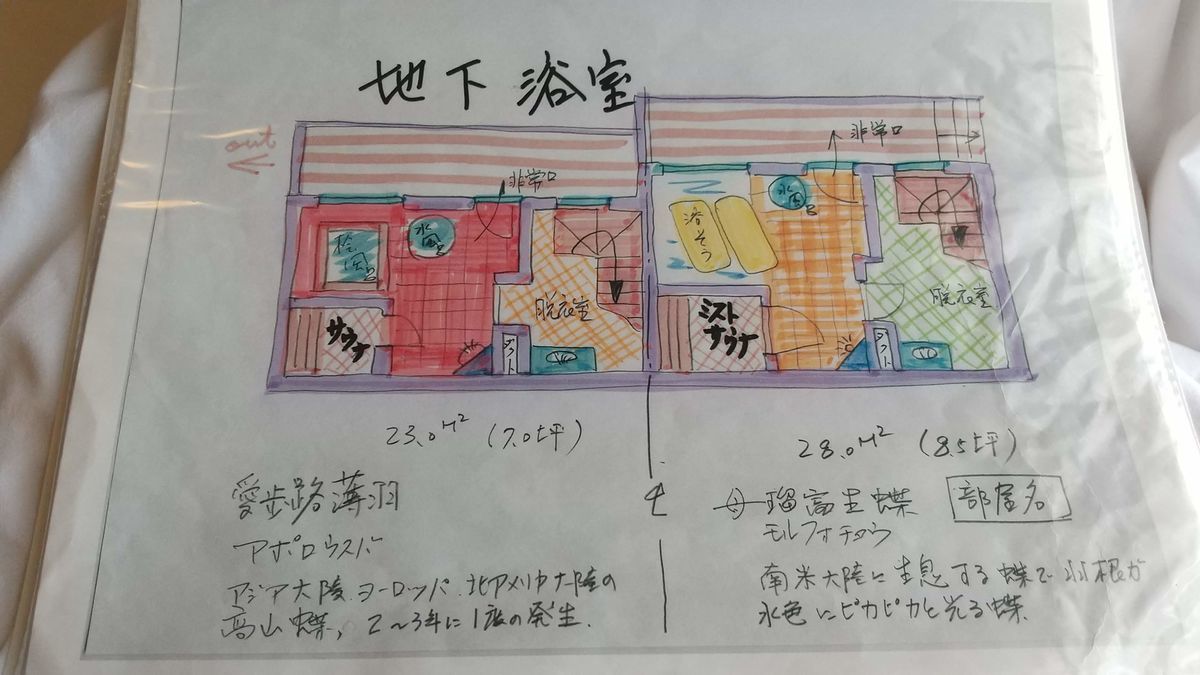 地下浴室
out
非常口
非常口
水風呂
浴そう
水風呂
脱衣室
脱衣室
サウナ
ダクト
ミスト
サウナ
ダクト
23.0M² (7.0坪)
28.0M² (8.5坪)
愛歩路薄羽
アポロウスバ
アジア大陸、ヨーロッパ、北アメリカ大陸の
高山蝶、2〜3年に1度の発生.
母瑠富王蝶
部屋名
モルフォチョウ
南米大陸に生息する蝶で羽根が
水色にピカピカと光る蝶